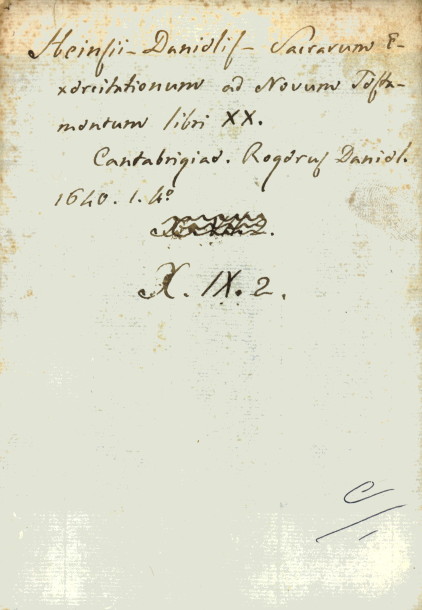 Heinsii - Danielis - Sacrarum E-
xercitationum ad Novum Testa-
mentum libri XX.
Cantabrigiae. Rogerus Daniel.
1640. 1. 4º
X. IX. 2.
C